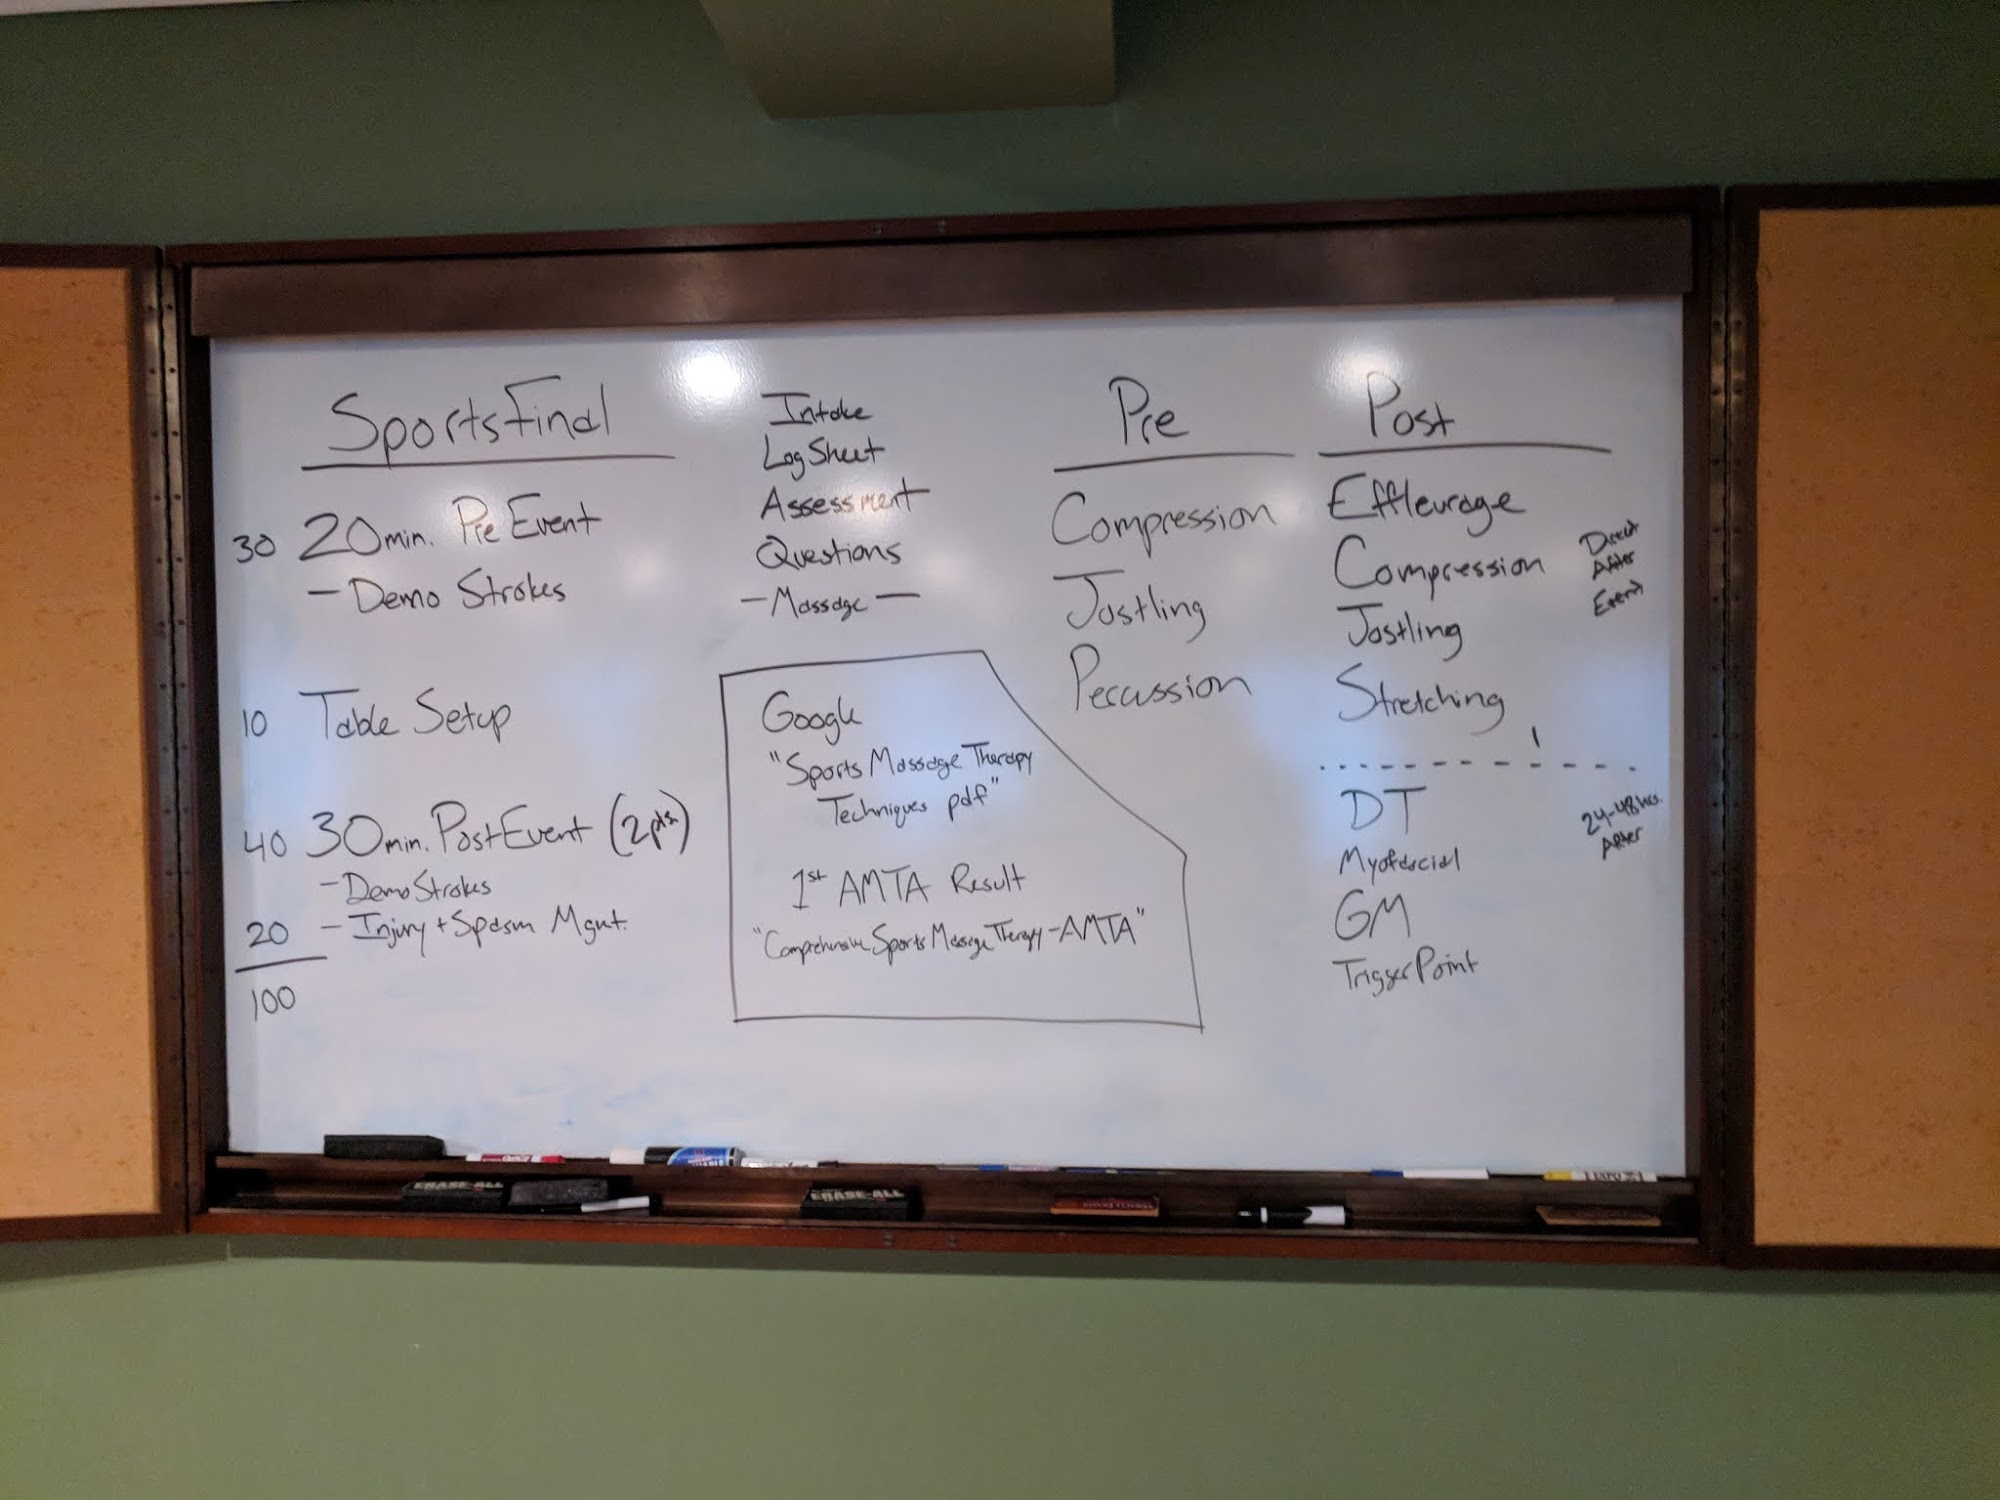 Sports Final
30 20min. Pre Event
- Demo Strokes
10 Table Setup
40 30min. Post Event (2pts)
- Demo Strokes
20 - Injury + Spasm Mgmt.
100
Intake
Log Sheet
Assessment
Questions
- Massage -
Google
"Sports Massage Therapy
Techniques pdf"
1st AMTA Result
"Comprehensive Sports Massage Therapy - AMTA"
Pre
Compression
Jostling
Percussion
Post
Effleurage
Compression
Jostling
Stretching
Direct
After
Event
DT
Myofascial
GM
Trigger Point
24-48 hrs.
After
ERASE-ALL
ERASE-ALL